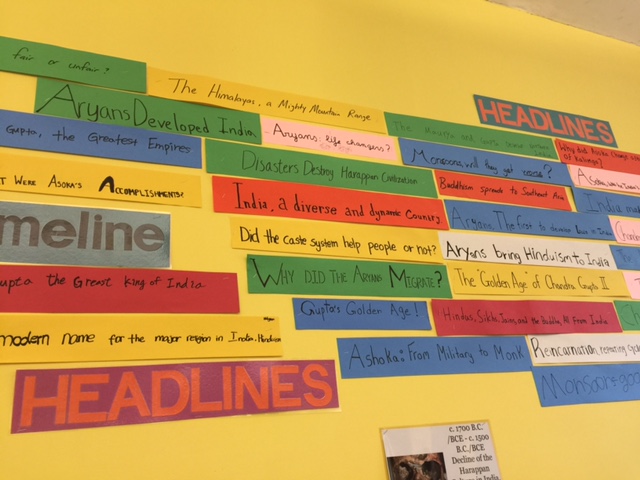 fair or unfair?
The Himalayas, a Mighty Mountain Range
HEADLINES
Aryans Developed India
Aryans: life changers?
The Maurya and Gupta
Why did Asoka
Gupta, the Greatest Empires
Disasters Destroy Harappan Civilization
Monsoons, will they get
Were Asoka's Accomplishments?
India, a diverse and dynamic Country
Buddhism spreads to Southeast Asia
India
Aryans, The first to develop
meline
Did the caste system help people or not?
Aryans bring Hinduism to India
Gupta the Great king of India
Why did the Aryans Migrate?
The "Golden Age" of Chandra Gupta II
Gupta's Golden Age!
Hindus, Sikhs, Jains, and the Buddha, All From India
modern name for the major religion in India,
Ashoka: From Military to Monk
Reincarnation, repeating
HEADLINES
Monsoon-good
c. 1700 B.C.
/BCE - c. 1500
B.C./BCE
Decline of the
Harappan
in India